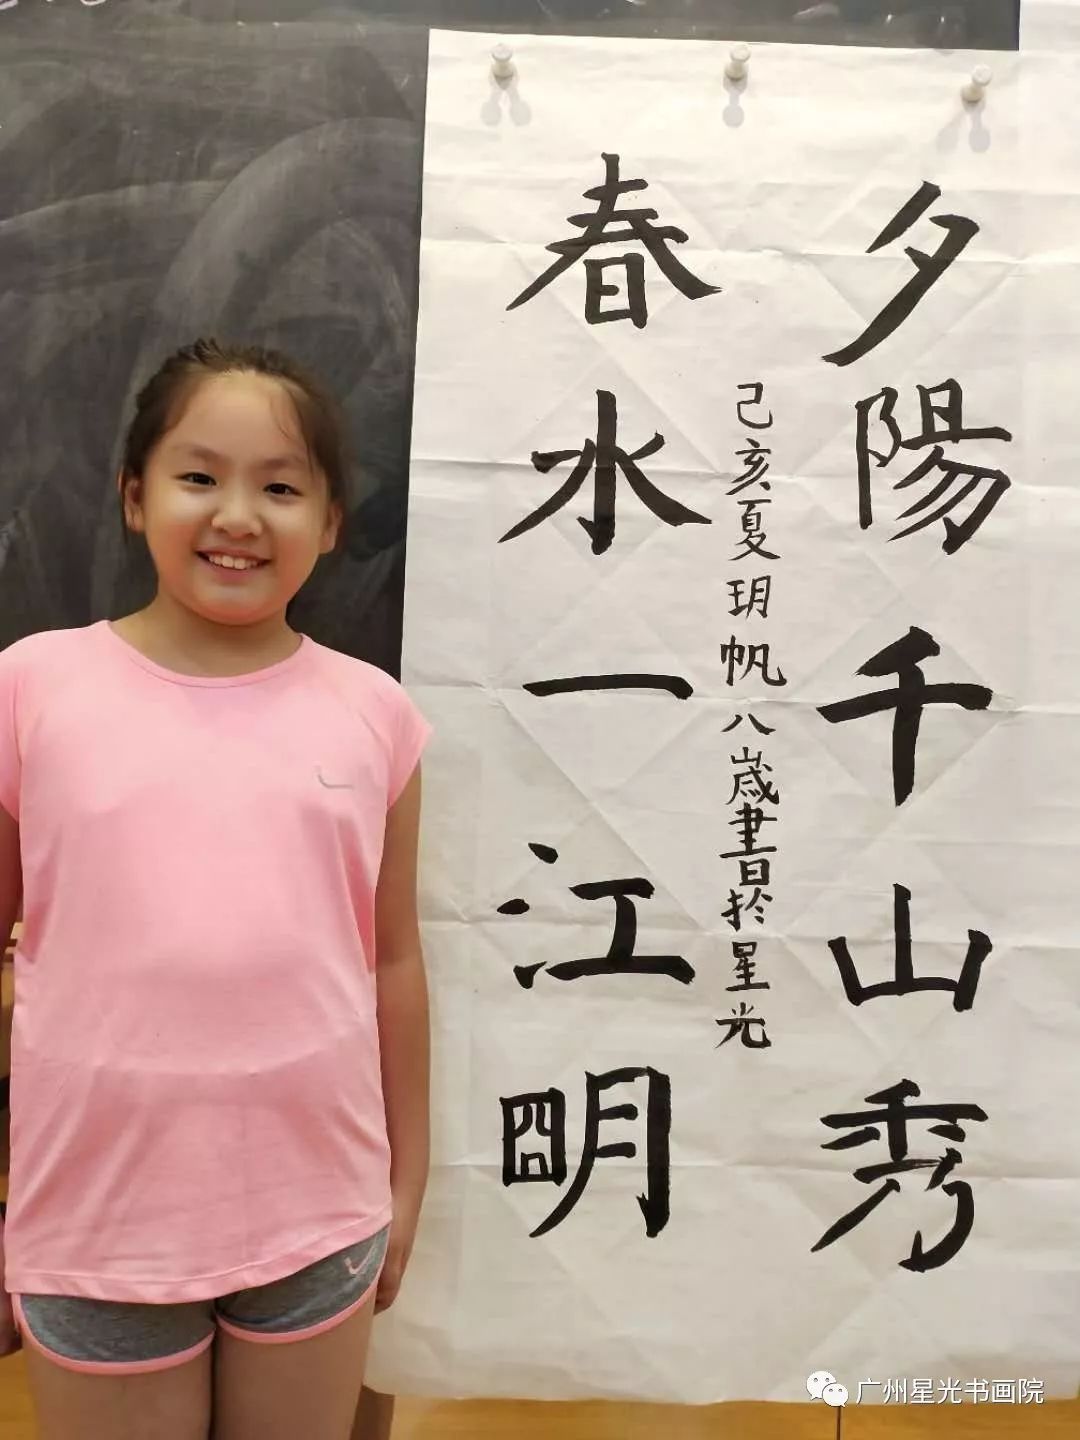 夕陽千山秀
春水一江朙
己亥夏玥帆八歲書於星光
广州星光书画院